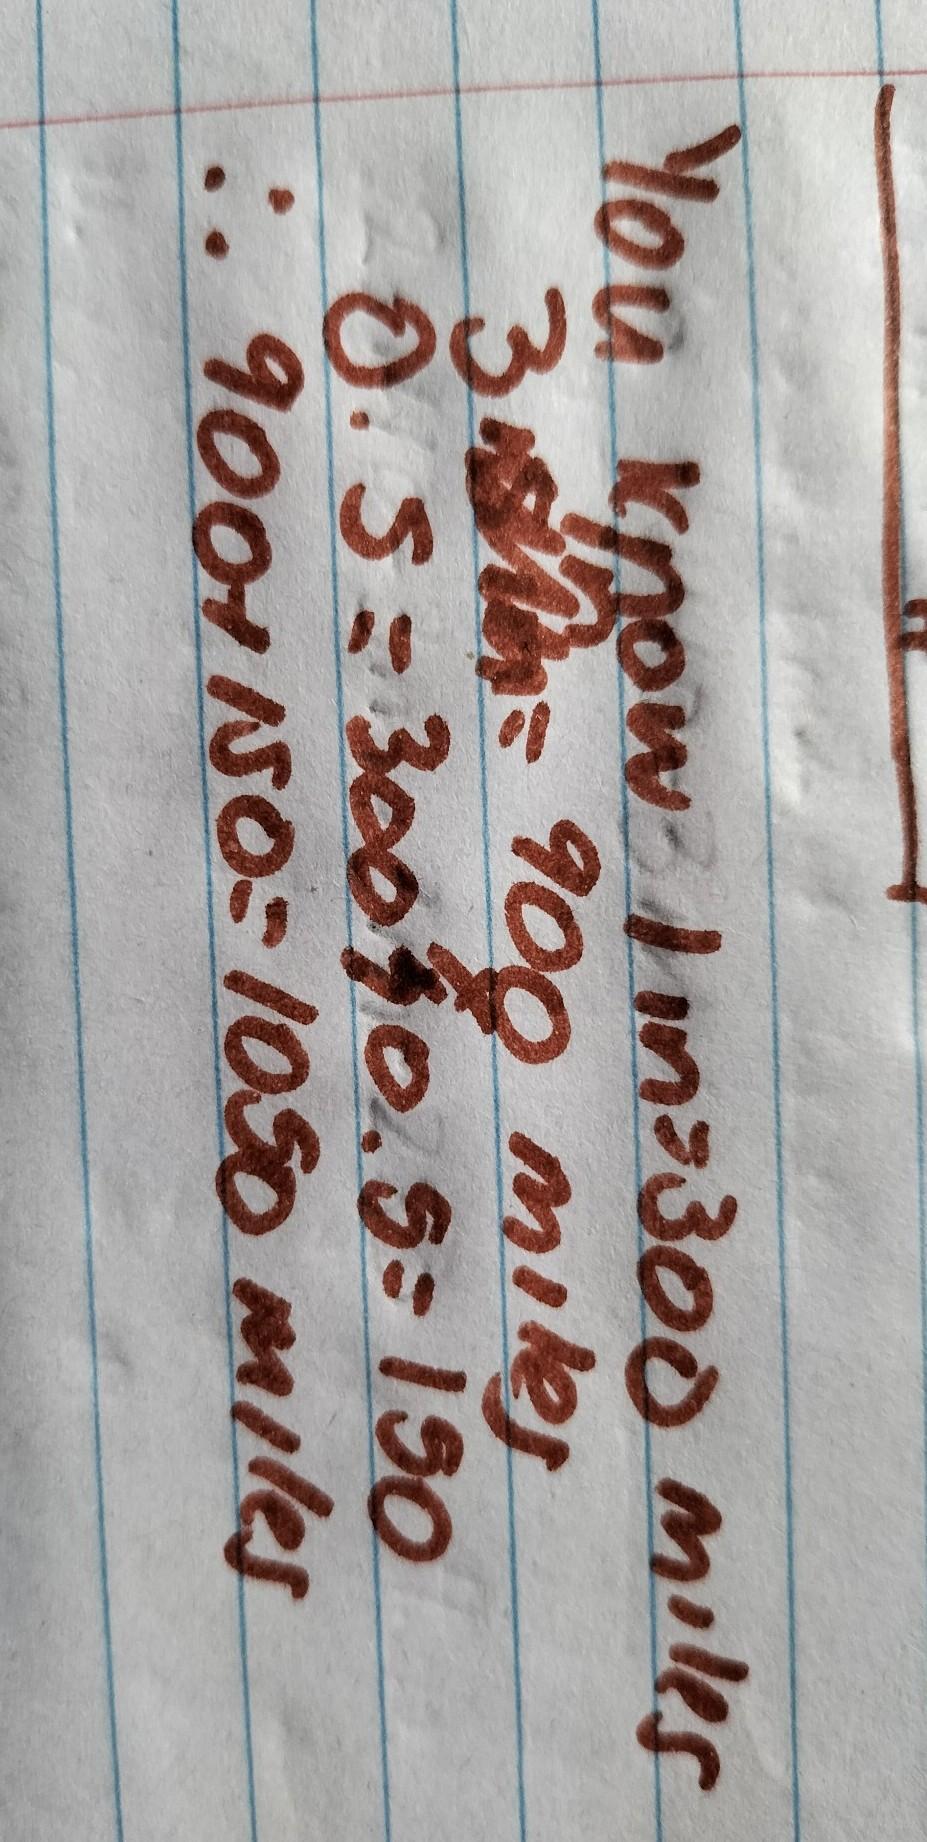 You know 1 in = 300 miles
3 = 900 miles
0.5 = 300 x 0.5 = 150
∴ 900 + 150 = 1050 miles